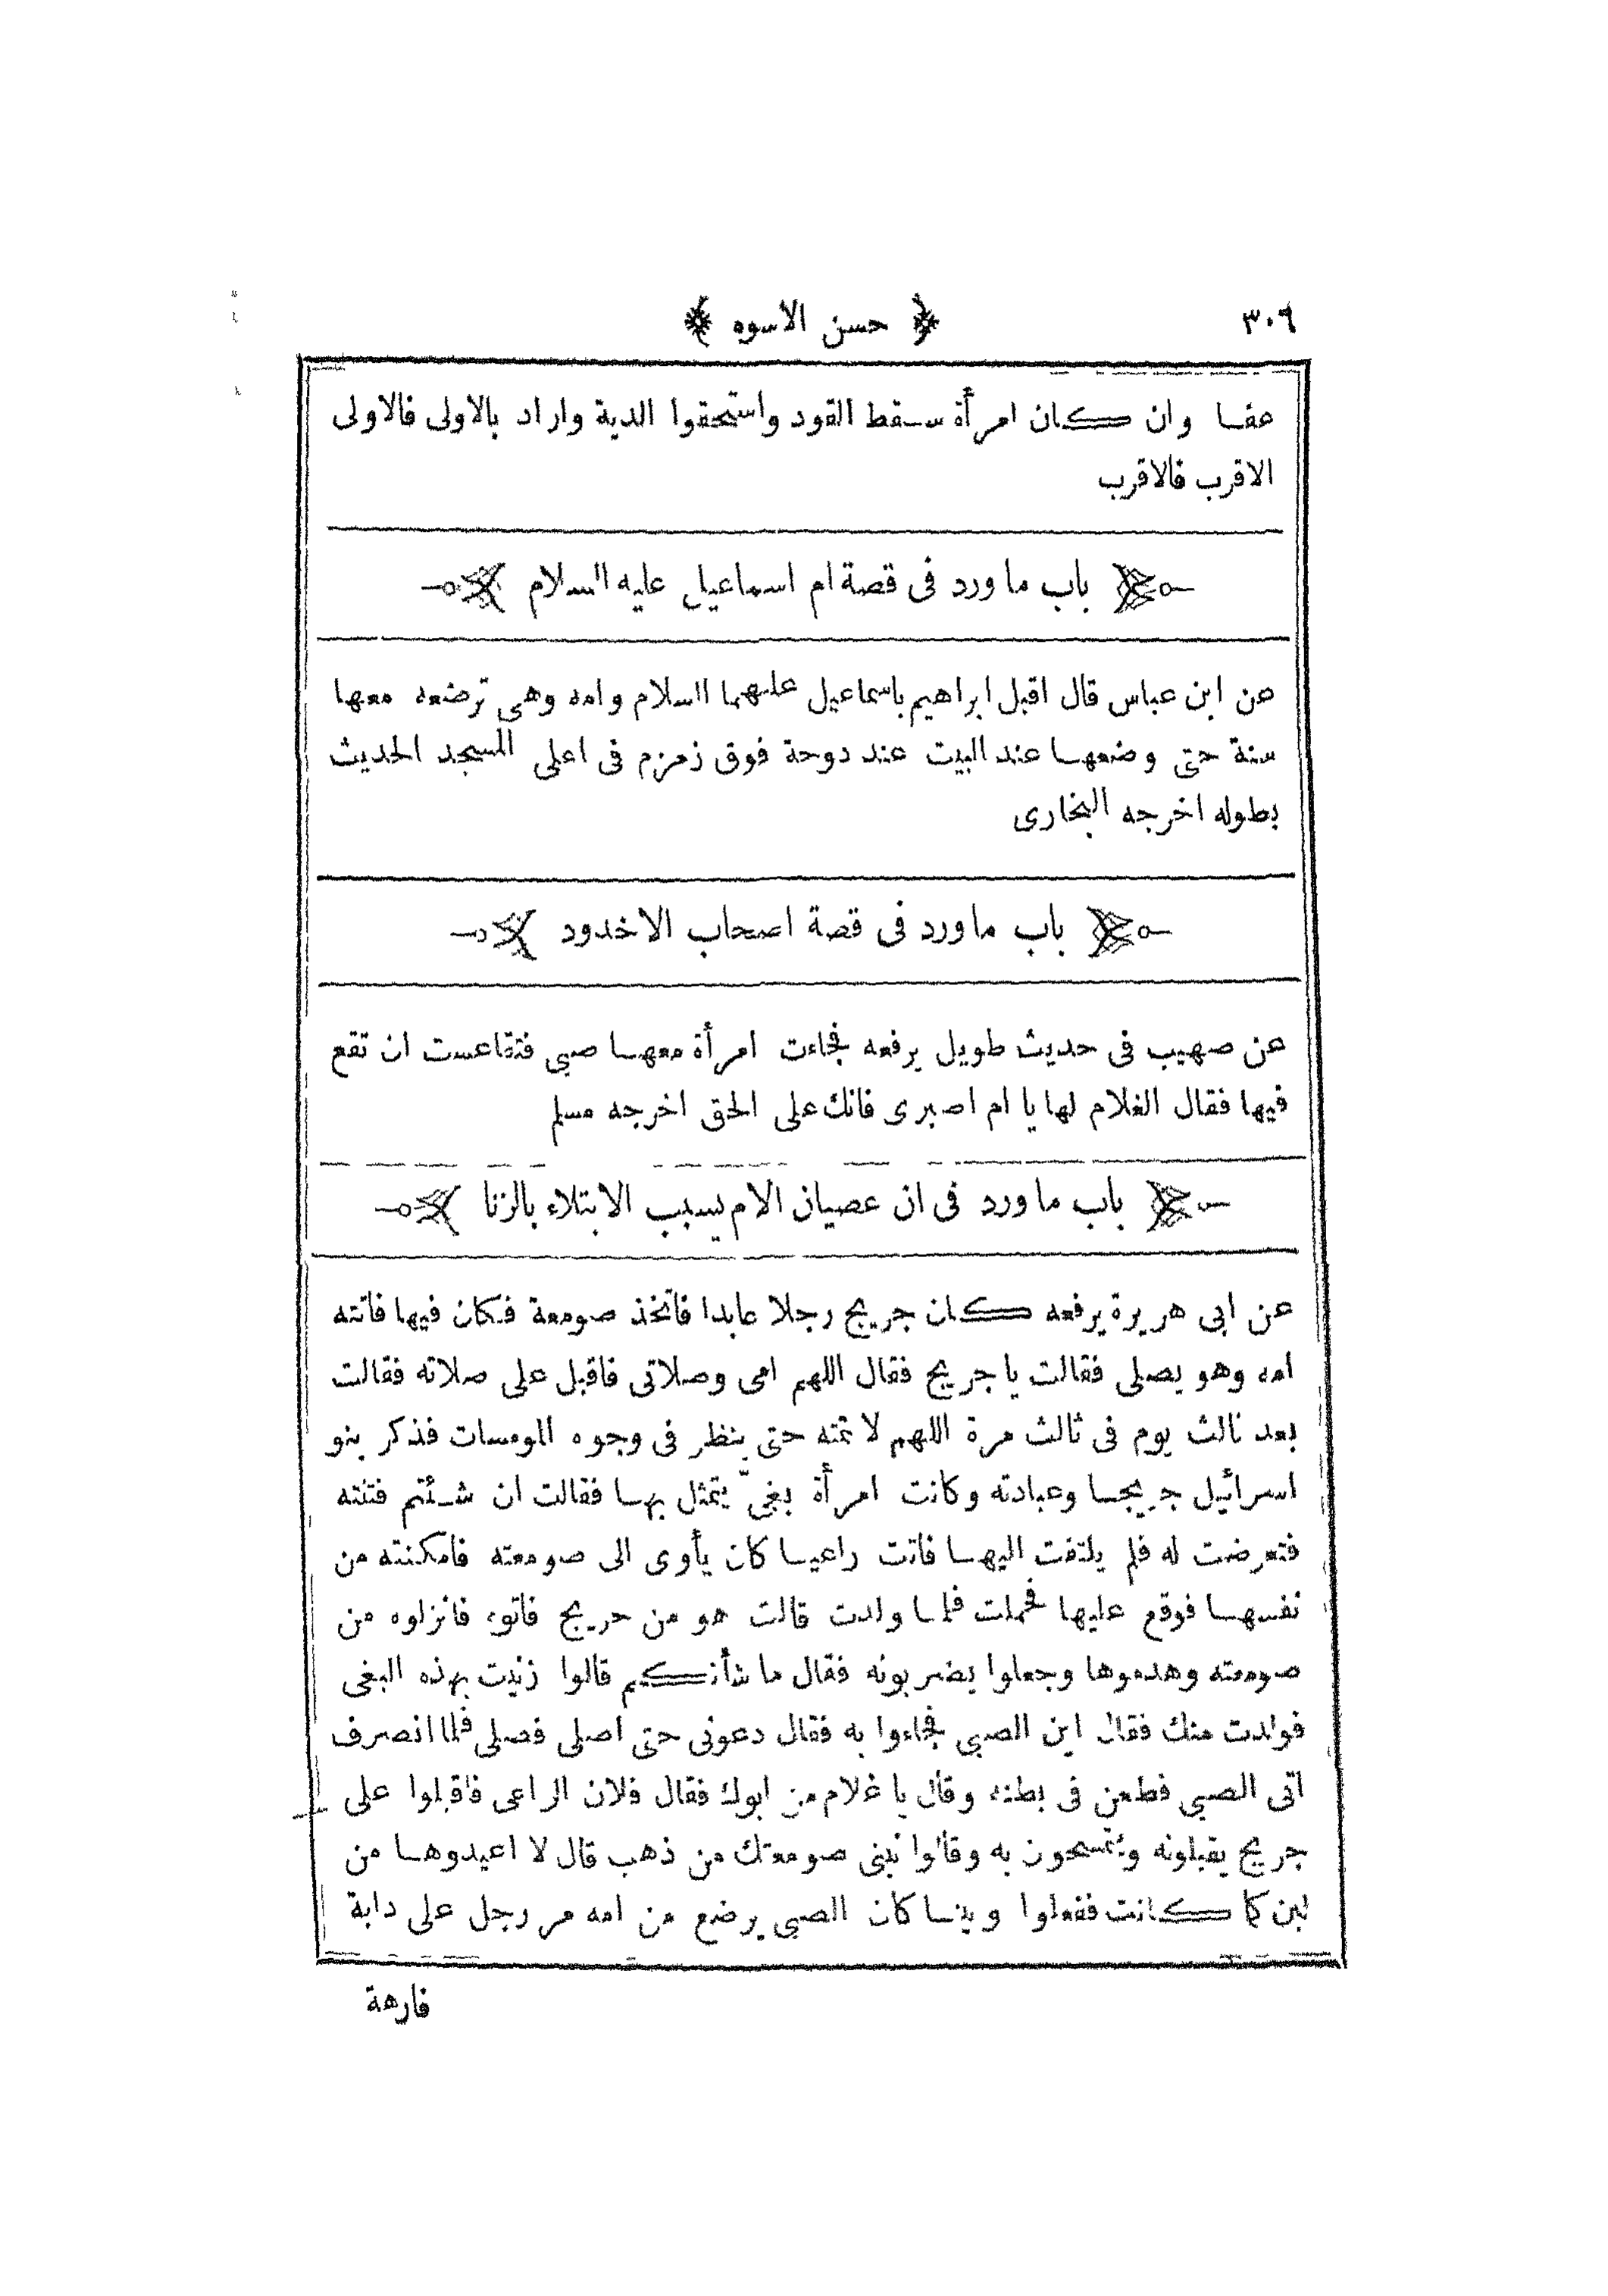 ٣٠٦ ﴿ حسن الاسوه ﴾
عفا وان كان امرأة سقط القود واستحقوا الدية واراد بالاولى فالاولى
الاقرب فالاقرب
باب ما ورد فى قصة ام اسماعيل عليه السلام
عن ابن عباس قال اقبل ابراهيم باسماعيل عليهما السلام وامه وهى ترضعه معها
سنة حتى وضعها عند البيت عند دوحة فوق زمزم فى اعلى المسجد الحديث
بطوله اخرجه البخارى
باب ما ورد فى قصة اصحاب الاخدود
عن صهيب فى حديث طويل يرفعه فجاءت امرأة معها صبى فتقاعست ان تقع
فيها فقال الغلام لها يا ام اصبرى فانك على الحق اخرجه مسلم
باب ما ورد فى ان عصيان الام يسبب الابتلاء بالزنا
عن ابى هريرة يرفعه كان جريج رجلا عابدا فاتخذ صومعة فكان فيها فاتته
امه وهو يصلى فقالت يا جريج فقال اللهم امى وصلاتى فاقبل على صلاته فقالت
بعد ثالث يوم فى ثالث مرة اللهم لا تمته حتى ينظر فى وجوه المومسات فذكر بنو
اسرائيل جريجا وعبادته وكانت امرأة بغىّ يتمثل بها فقالت ان شئتم فتنته
فتعرضت له فلم يلتفت اليها فاتت راعيا كان يأوى الى صومعته فامكنته من
نفسها فوقع عليها فحملت فلما ولدت قالت هو من جريج فاتوه فانزلوه من
صومعته وهدموها وجعلوا يضربونه فقال ما شأنكم قالوا زنيت بهذه البغى
فولدت منك فقال اين الصبى فجاءوا به فقال دعونى حتى اصلى فصلى فلما انصرف
اتى الصبى فطعن فى بطنه وقال يا غلام من ابوك فقال فلان الراعى فاقبلوا على
جريج يقبلونه ويتمسحون به وقالوا نبنى صومعتك من ذهب قال لا اعيدوها من
لبن كما كانت ففعلوا وبينا كان الصبى يرضع من امه مر رجل على دابة
فارهة